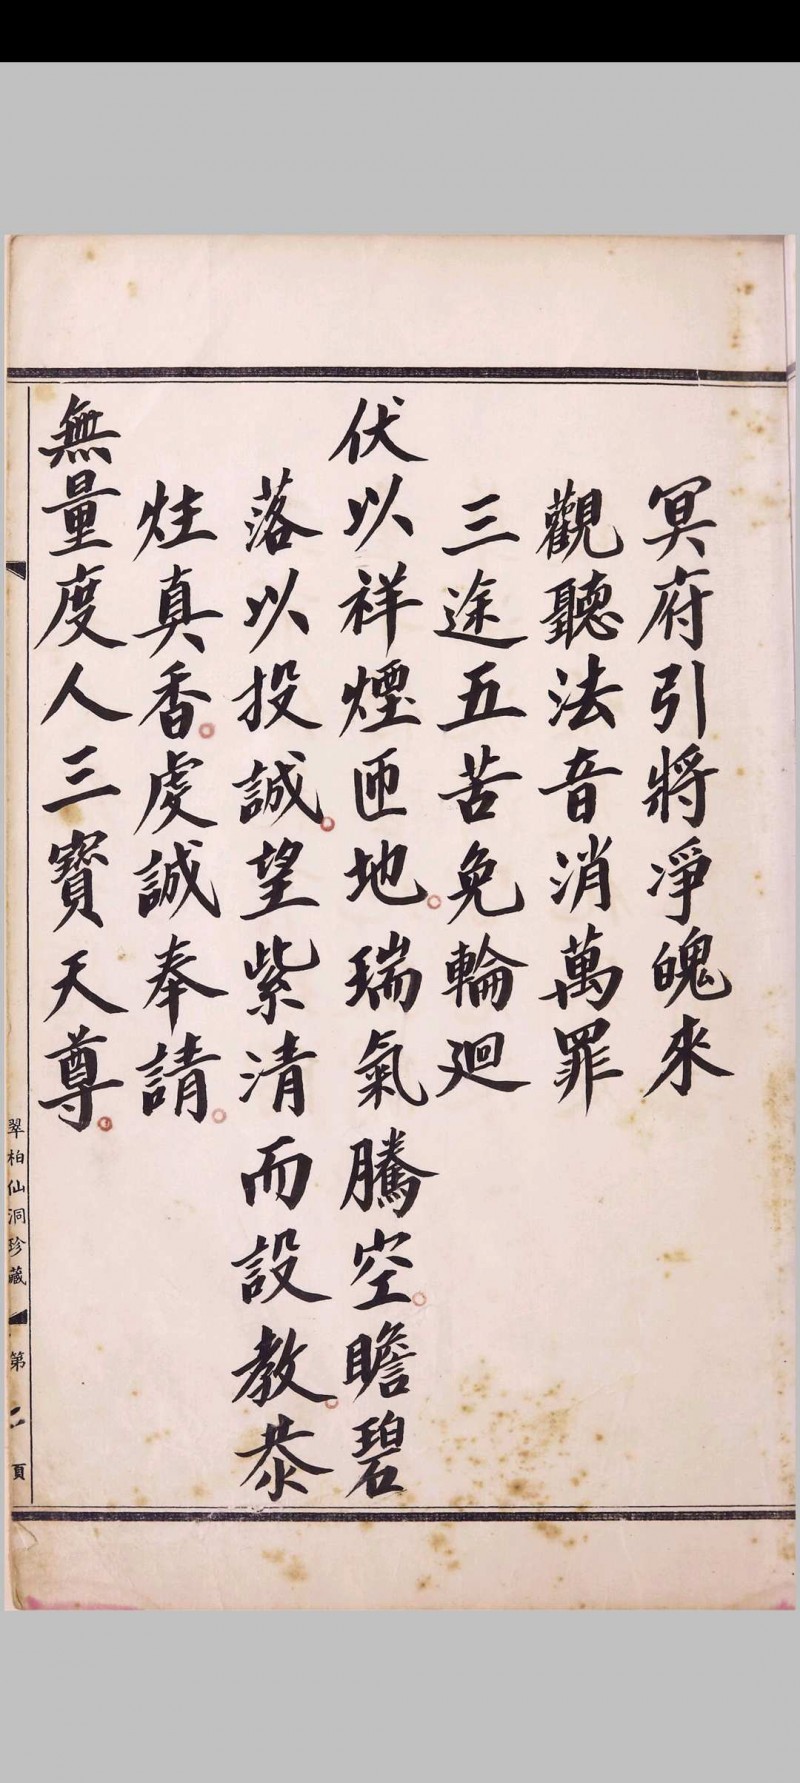 冥府引將淨魄來
觀聽法音消萬罪
三途五苦免輪迴
伏以祥煙匝地瑞氣騰空瞻碧
落以投誠望紫清而設教恭
炷真香虔誠奉請
無量度人三寶天尊
翠柏仙洞珍藏 第二頁